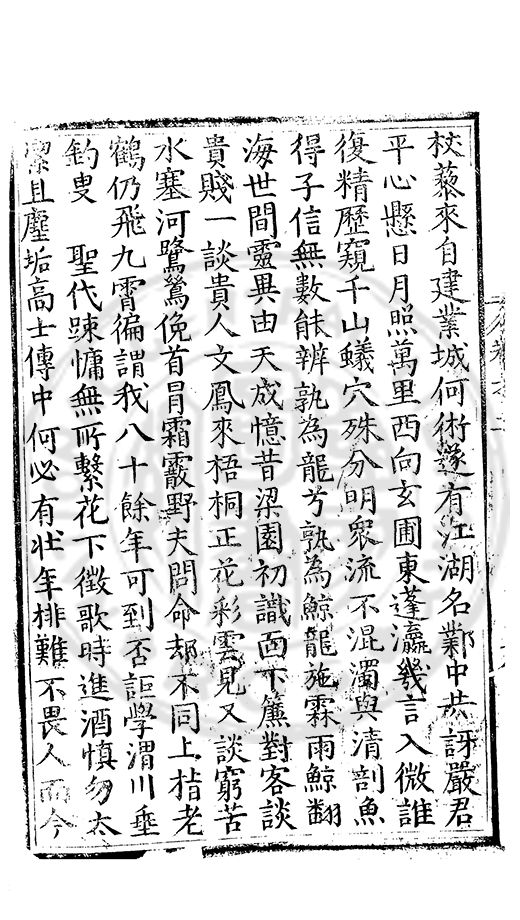 校藜來自建業城何術遂有江湖名鄴中共訝嚴君
平心懸日月照萬里西向玄圃東蓬瀛幾言入微誰
復精歷窺千山蟻穴殊分明衆流不混濁與清剖魚
得子信無數能辨孰為龍兮孰為鯨龍施霖雨鯨翻
海世間靈異由天成憶昔梁園初識面下簾對客談
貴賤一談貴人文鳳來梧桐正花彩雲見又談窮苦
水塞河鷺鶿俛首冒霜霰野夫問命却不同上指老
鶴仍飛九霄徧謂我八十餘年可到否詎學渭川垂
釣叟　聖代踈慵無所繫花下徵歌時進酒慎勿太
潔且塵垢高士傳中何必有壯年排難不畏人而今